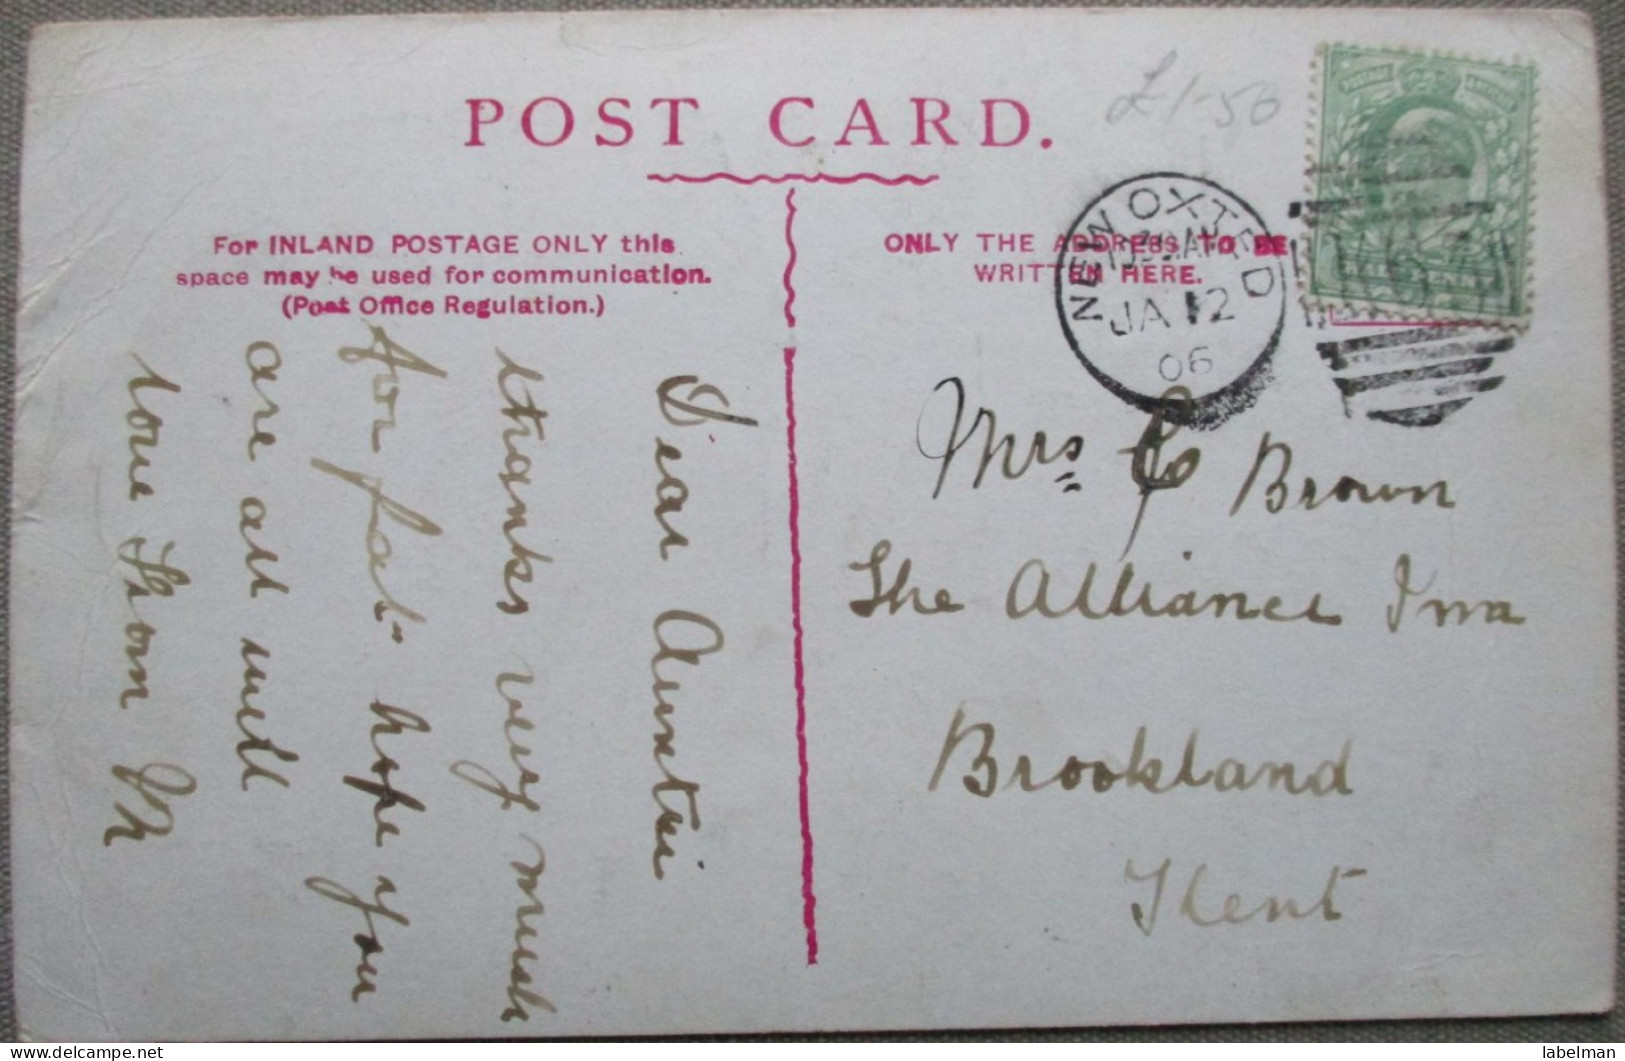 POST CARD.
£1-50
For INLAND POSTAGE ONLY this
space may be used for communication.
(Post Office Regulation.)
ONLY THE ADDRESS TO BE
WRITTEN HERE.
NEW OXTED
JA 12
06
HALFPENNY
Mrs C Brown
The Alliance Inn
Brookland
Kent
Dear Auntie
thanks very much
for hope you
are all well
love from
delcampe.net
labelman